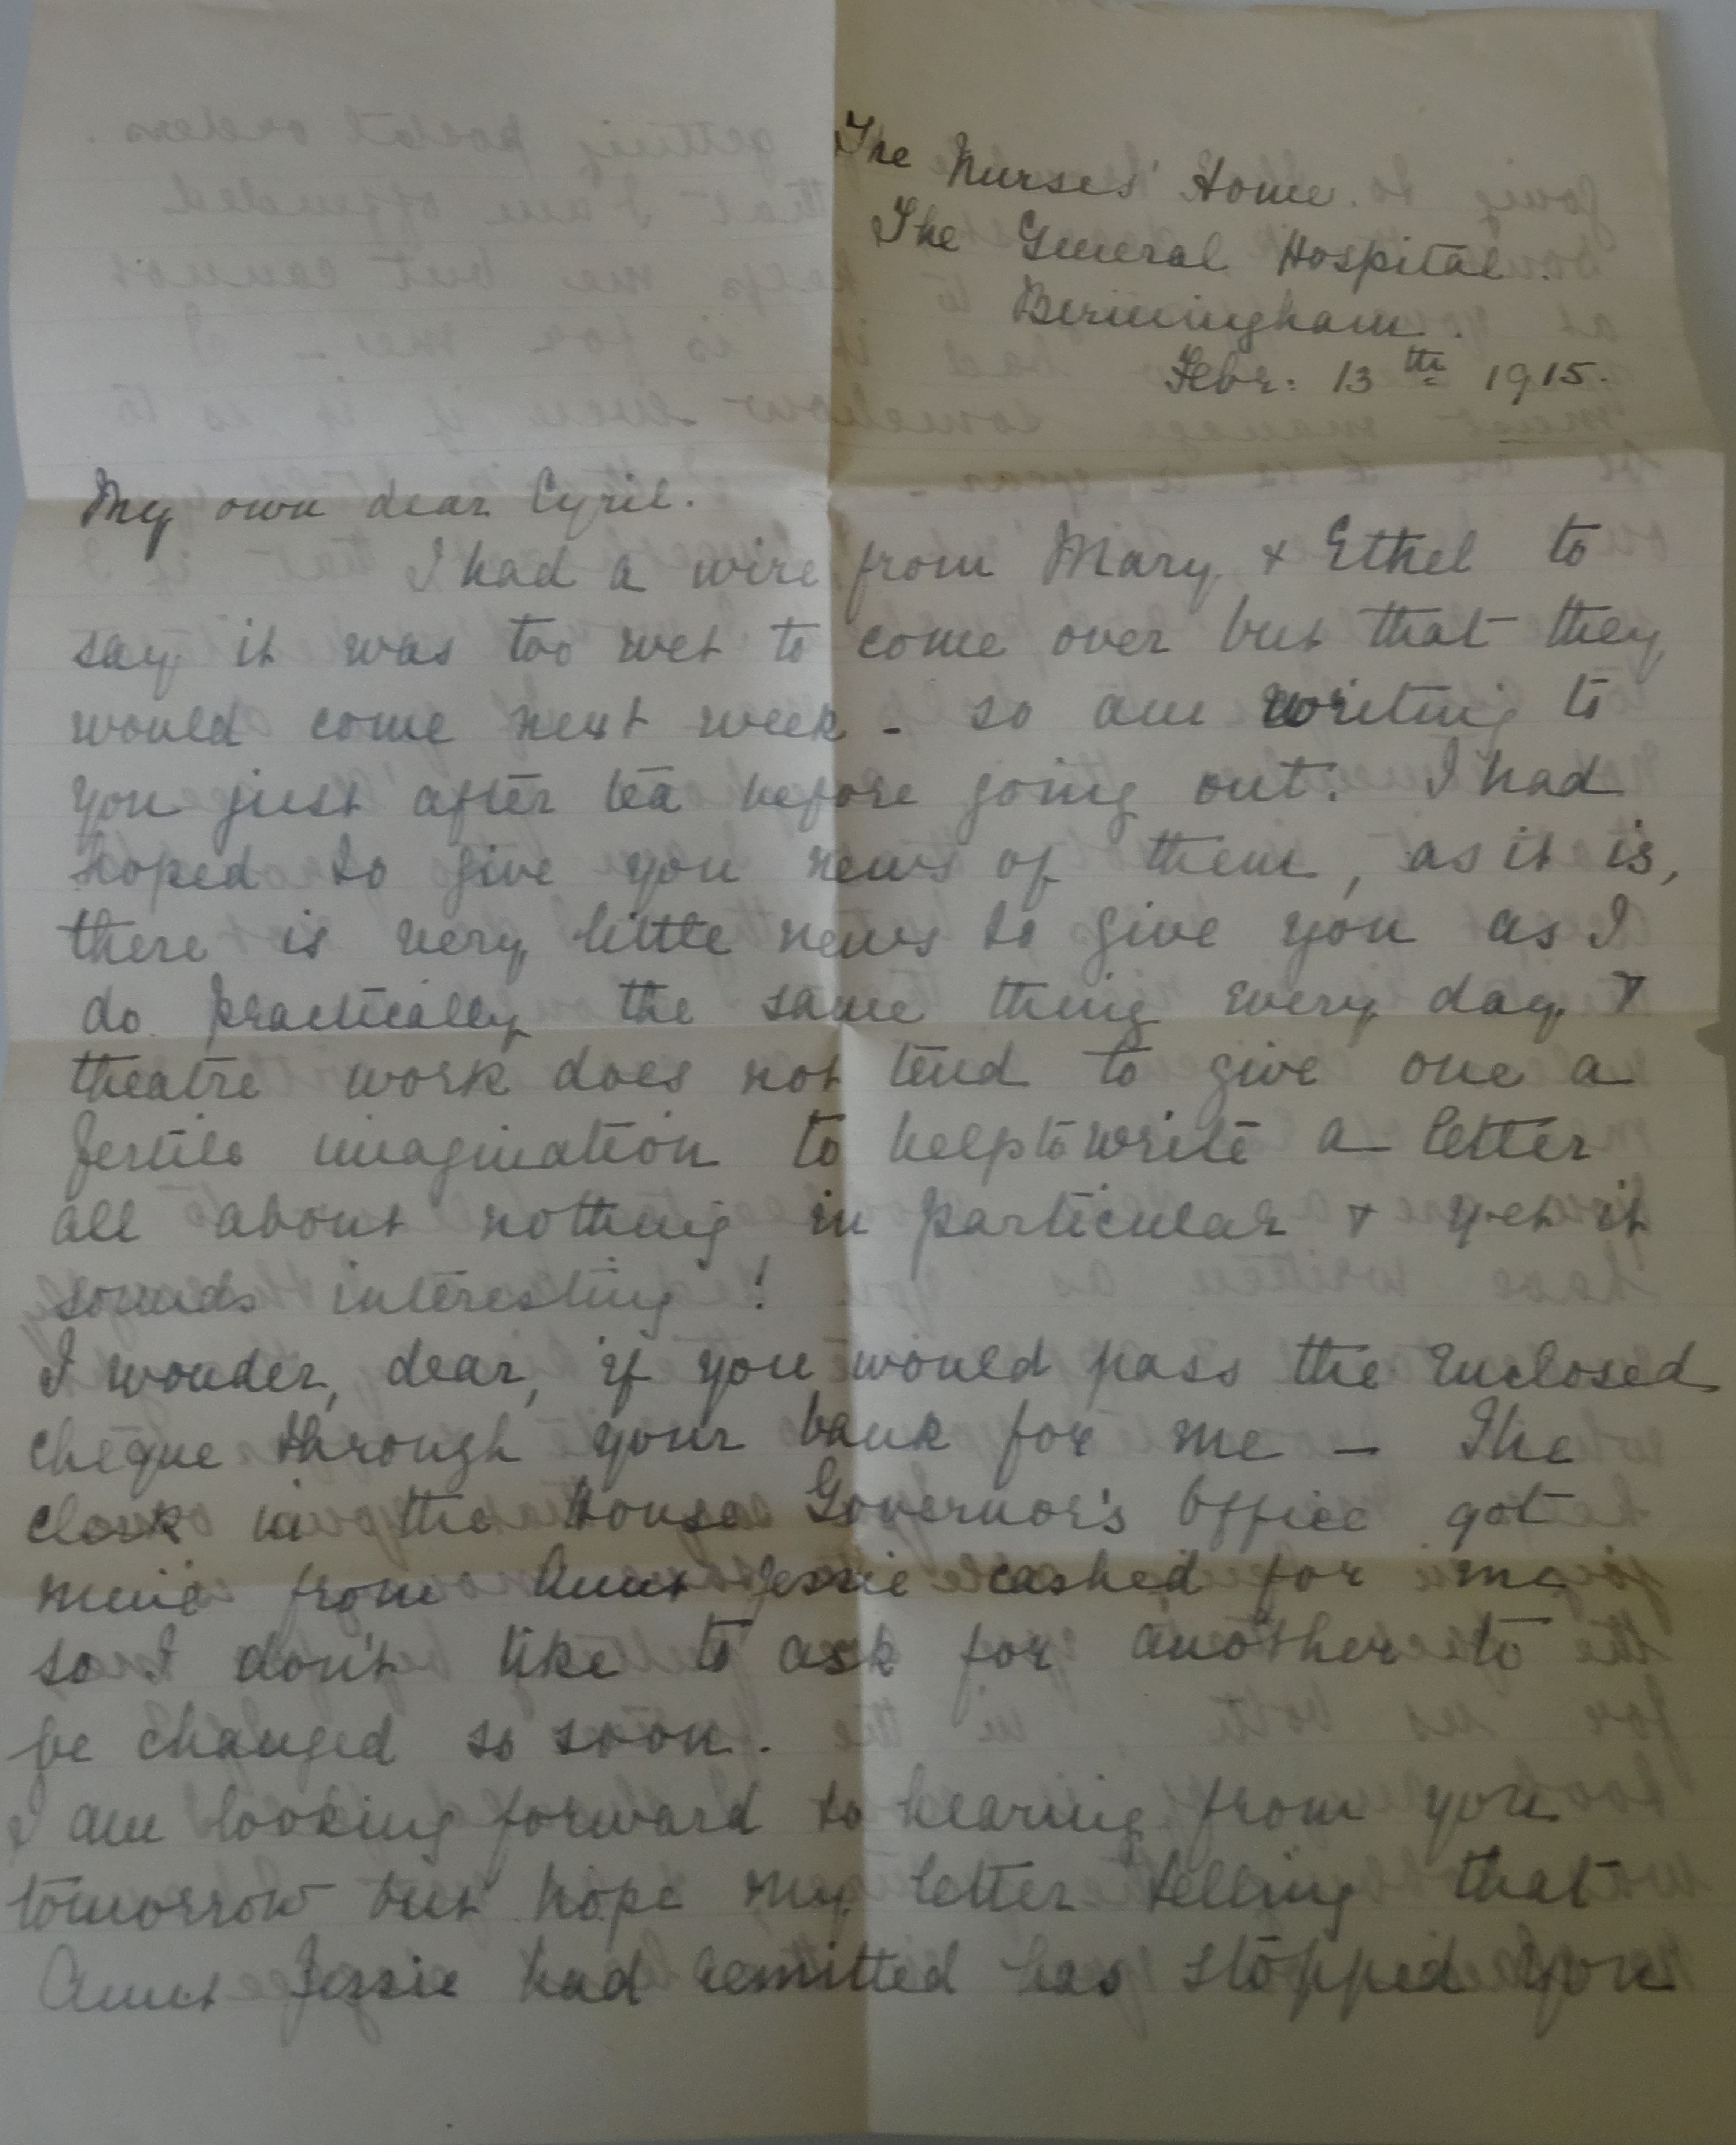 The Nurses' Home.
The General Hospital.
Birmingham.
Febr: 13th 1915.
My own dear Cyril.
I had a wire from Mary & Ethel to
say it was too wet to come over but that they
would come next week - so am writing to
you just after tea before going out. I had
hoped to give you news of them, as it is,
there is very little news to give you as I
do practically the same thing every day &
theatre work does not tend to give one a
fertile imagination to help to write a letter
all about nothing in particular & yet it
sounds interesting!
I wonder, dear, if you would pass the enclosed
cheque through your bank for me - The
clerk in the House Governor's Office got
mine from Aunt Jessie cashed for me
so I don't like to ask for another to
be changed so soon.
I am looking forward to hearing from you
tomorrow but hope my letter telling that
Aunt Jessie had remitted has stopped you